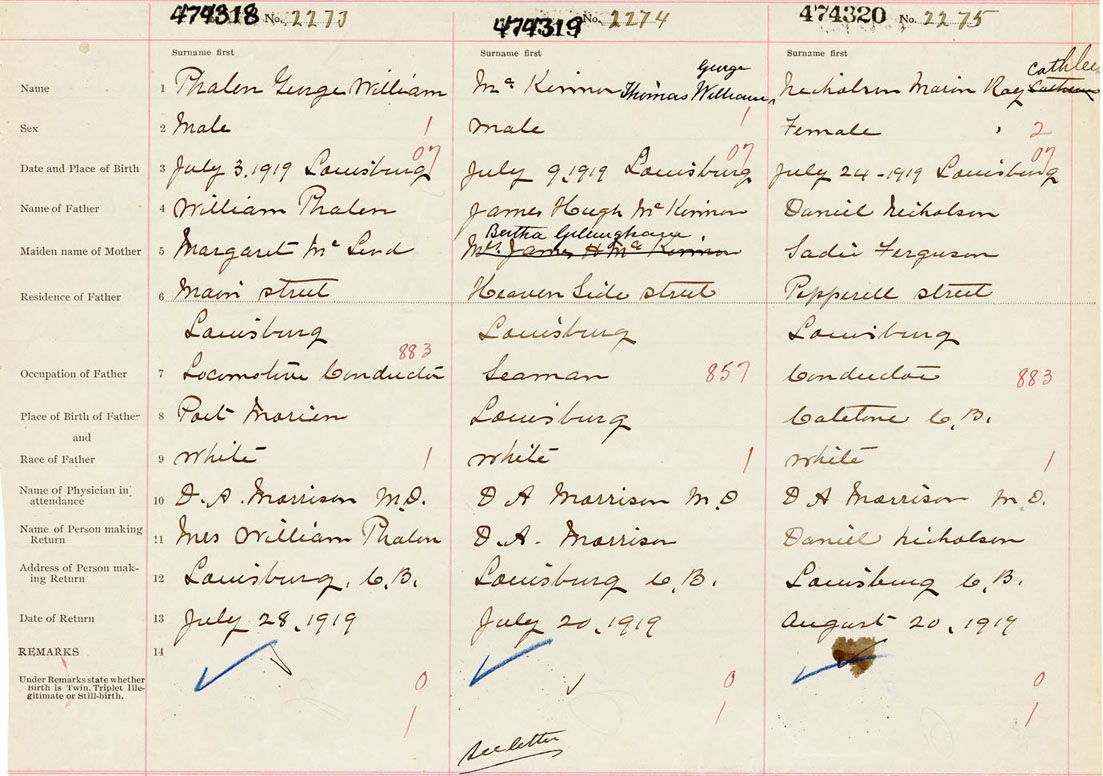 474318 No. 2273
474319 No. 2274
474320 No. 2275
Surname first Surname first Surname first
George Cathleen
Name 1 Phalen George William Mc Kinnon Thomas William Nicholson Marion Ray
1
Sex 2 Male 1 Male Female 2
07 07 07
Date and Place of Birth 3 July 3, 1919 Louisburg July 9, 1919 Louisburg July 24-1919 Louisburg
Name of Father 4 William Phalen James Hugh McKinnon Daniel Nicholson
Bertha
Maiden name of Mother 5 Margaret McLeod Mrs. James H Mc Kinnon Sadie Ferguson
Residence of Father 6 Main street Heaven Side street Pepperell street
Louisburg Louisburg Louisburg
883
Occupation of Father 7 Locomotive Conductor Seaman 857 Conductor 883
Place of Birth of Father 8 Port Morien Louisburg Catetone C.B.
and
Race of Father 9 White 1 White 1 White 1
Name of Physician in attendance 10 D.A. Morrison M.D. D A Morrison M.D D A Morrison M.D.
Name of Person making Return 11 Mrs William Phalen D.A. Morrison Daniel Nicholson
Address of Person making Return 12 Louisburg, C.B. Louisburg C.B. Louisburg C.B.
Date of Return 13 July 28, 1919 July 20, 1919 August 20, 1919
REMARKS 14
Under Remarks state whether
Birth is Twin, Triplet Ille-
gitimate or Still-birth.
0 0 0
1 1 1
See letter